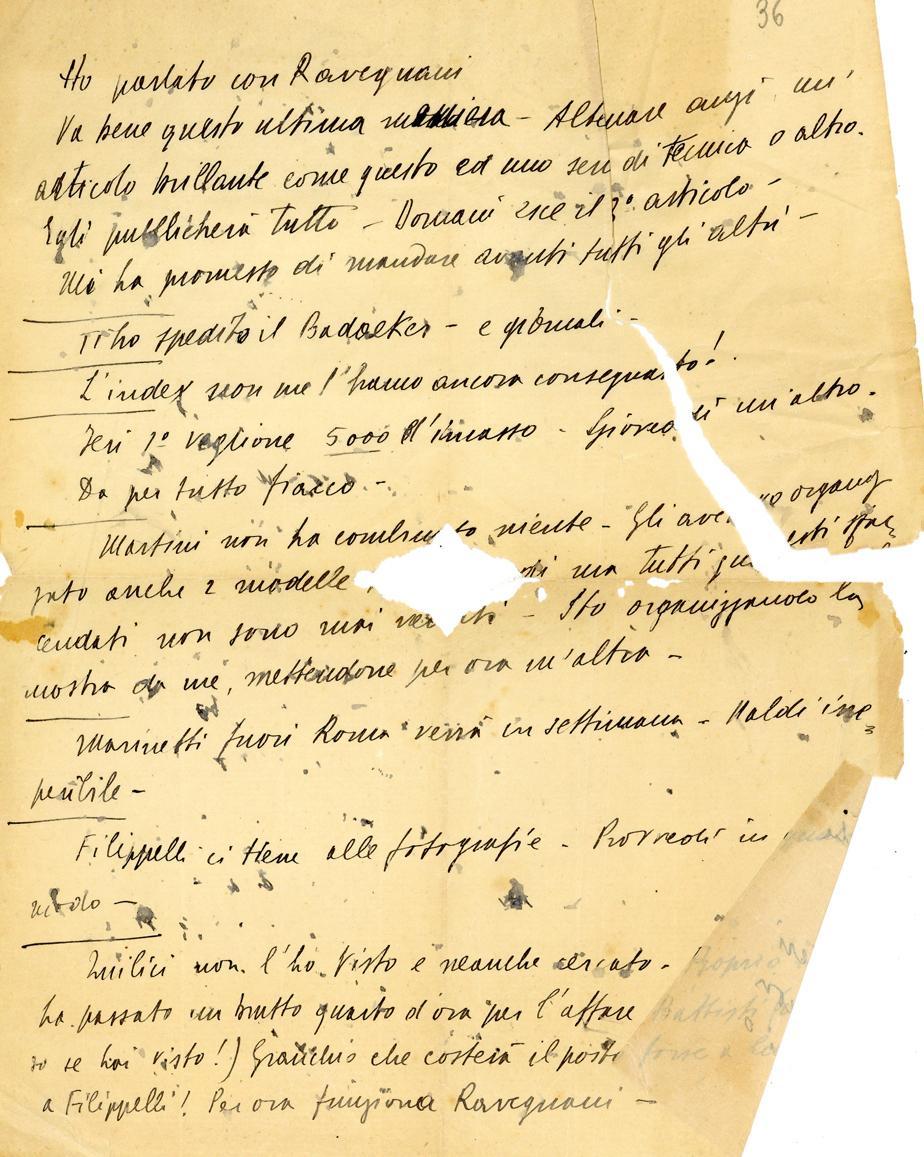 36
Ho parlato con Ravegnani
Va bene questo ultima maniera - Alternare anzi un'
articolo brillante come questo ed uno seri di tecnica o altro.
Egli pubblicherà tutto - Domani esce il 3° articolo -
Mi ha promesso di mandare avanti tutti gli altri -
Ti ho spedito il Badaeker - e giornali -
L'index non me l'hanno ancora consegnato!
Ieri 1° veglione 5000 d'incasso - Giovedì un'altro.
Da per tutto fiacco -
Martini non ha combinato niente - Gli avevo organiz
zato anche 2 modelle ma tutti questi sfac
cendati non sono mai venuti - Sto organizzando la
mostra da me, mettendone per ora un'altra -
Marinetti fuori Roma verrà in settimana - Naldi irre
peribile -
Filippelli ci tiene alle fotografie - Provvedi in
modo -
Quilici non l'ho visto e neanche cercato - Proprio
ha passato un brutto quarto d'ora per l'affare Battisti
so se hai visto!) Granchio che costerà il posto forse a
a Filippelli! Per ora funziona Ravegnani -